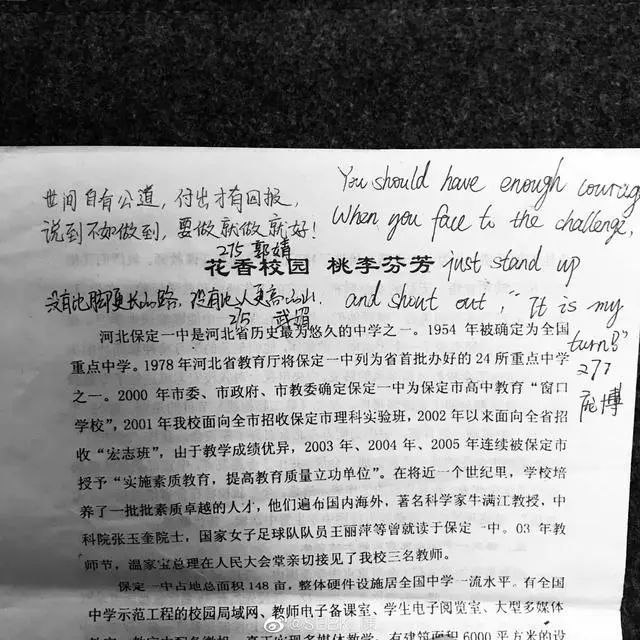 世间自有公道，付出才有回报，
说到不如做到，要做就做就好！
275 郭婧
You should have enough courage
When you face to the challenge,
just stand up
and shout out, "It is my
turn"
277
庞博
花香校园 桃李芬芳
没有比脚更长的路，没有比人更高的山.
275 武娟
河北保定一中是河北省历史最为悠久的中学之一。1954 年被确定为全国
重点中学。1978 年河北省教育厅将保定一中列为省首批办好的 24 所重点中学
之一。2000 年市委、市政府、市教委确定保定一中为保定市高中教育“窗口
学校”，2001 年我校面向全市招收保定市理科实验班，2002 年以来面向全省招
收“宏志班”，由于教学成绩优异，2003 年、2004 年、2005 年连续被保定市
授予“实施素质教育，提高教育质量立功单位”。在将近一个世纪里，学校培
养了一批批素质卓越的人才，他们遍布国内海外，著名科学家牛满江教授，中
科院张玉奎院士，国家女子足球队队员王丽萍等曾就读于保定一中。03 年教
师节，温家宝总理在人民大会堂亲切接见了我校三名教师。
保定一中占地总面积 148 亩，整体硬件设施居全国中学一流水平。有全国
中学示范工程的校园局域网、教师电子备课室、学生电子阅览室、大型多媒体
有建筑面积 6000 平方米的设